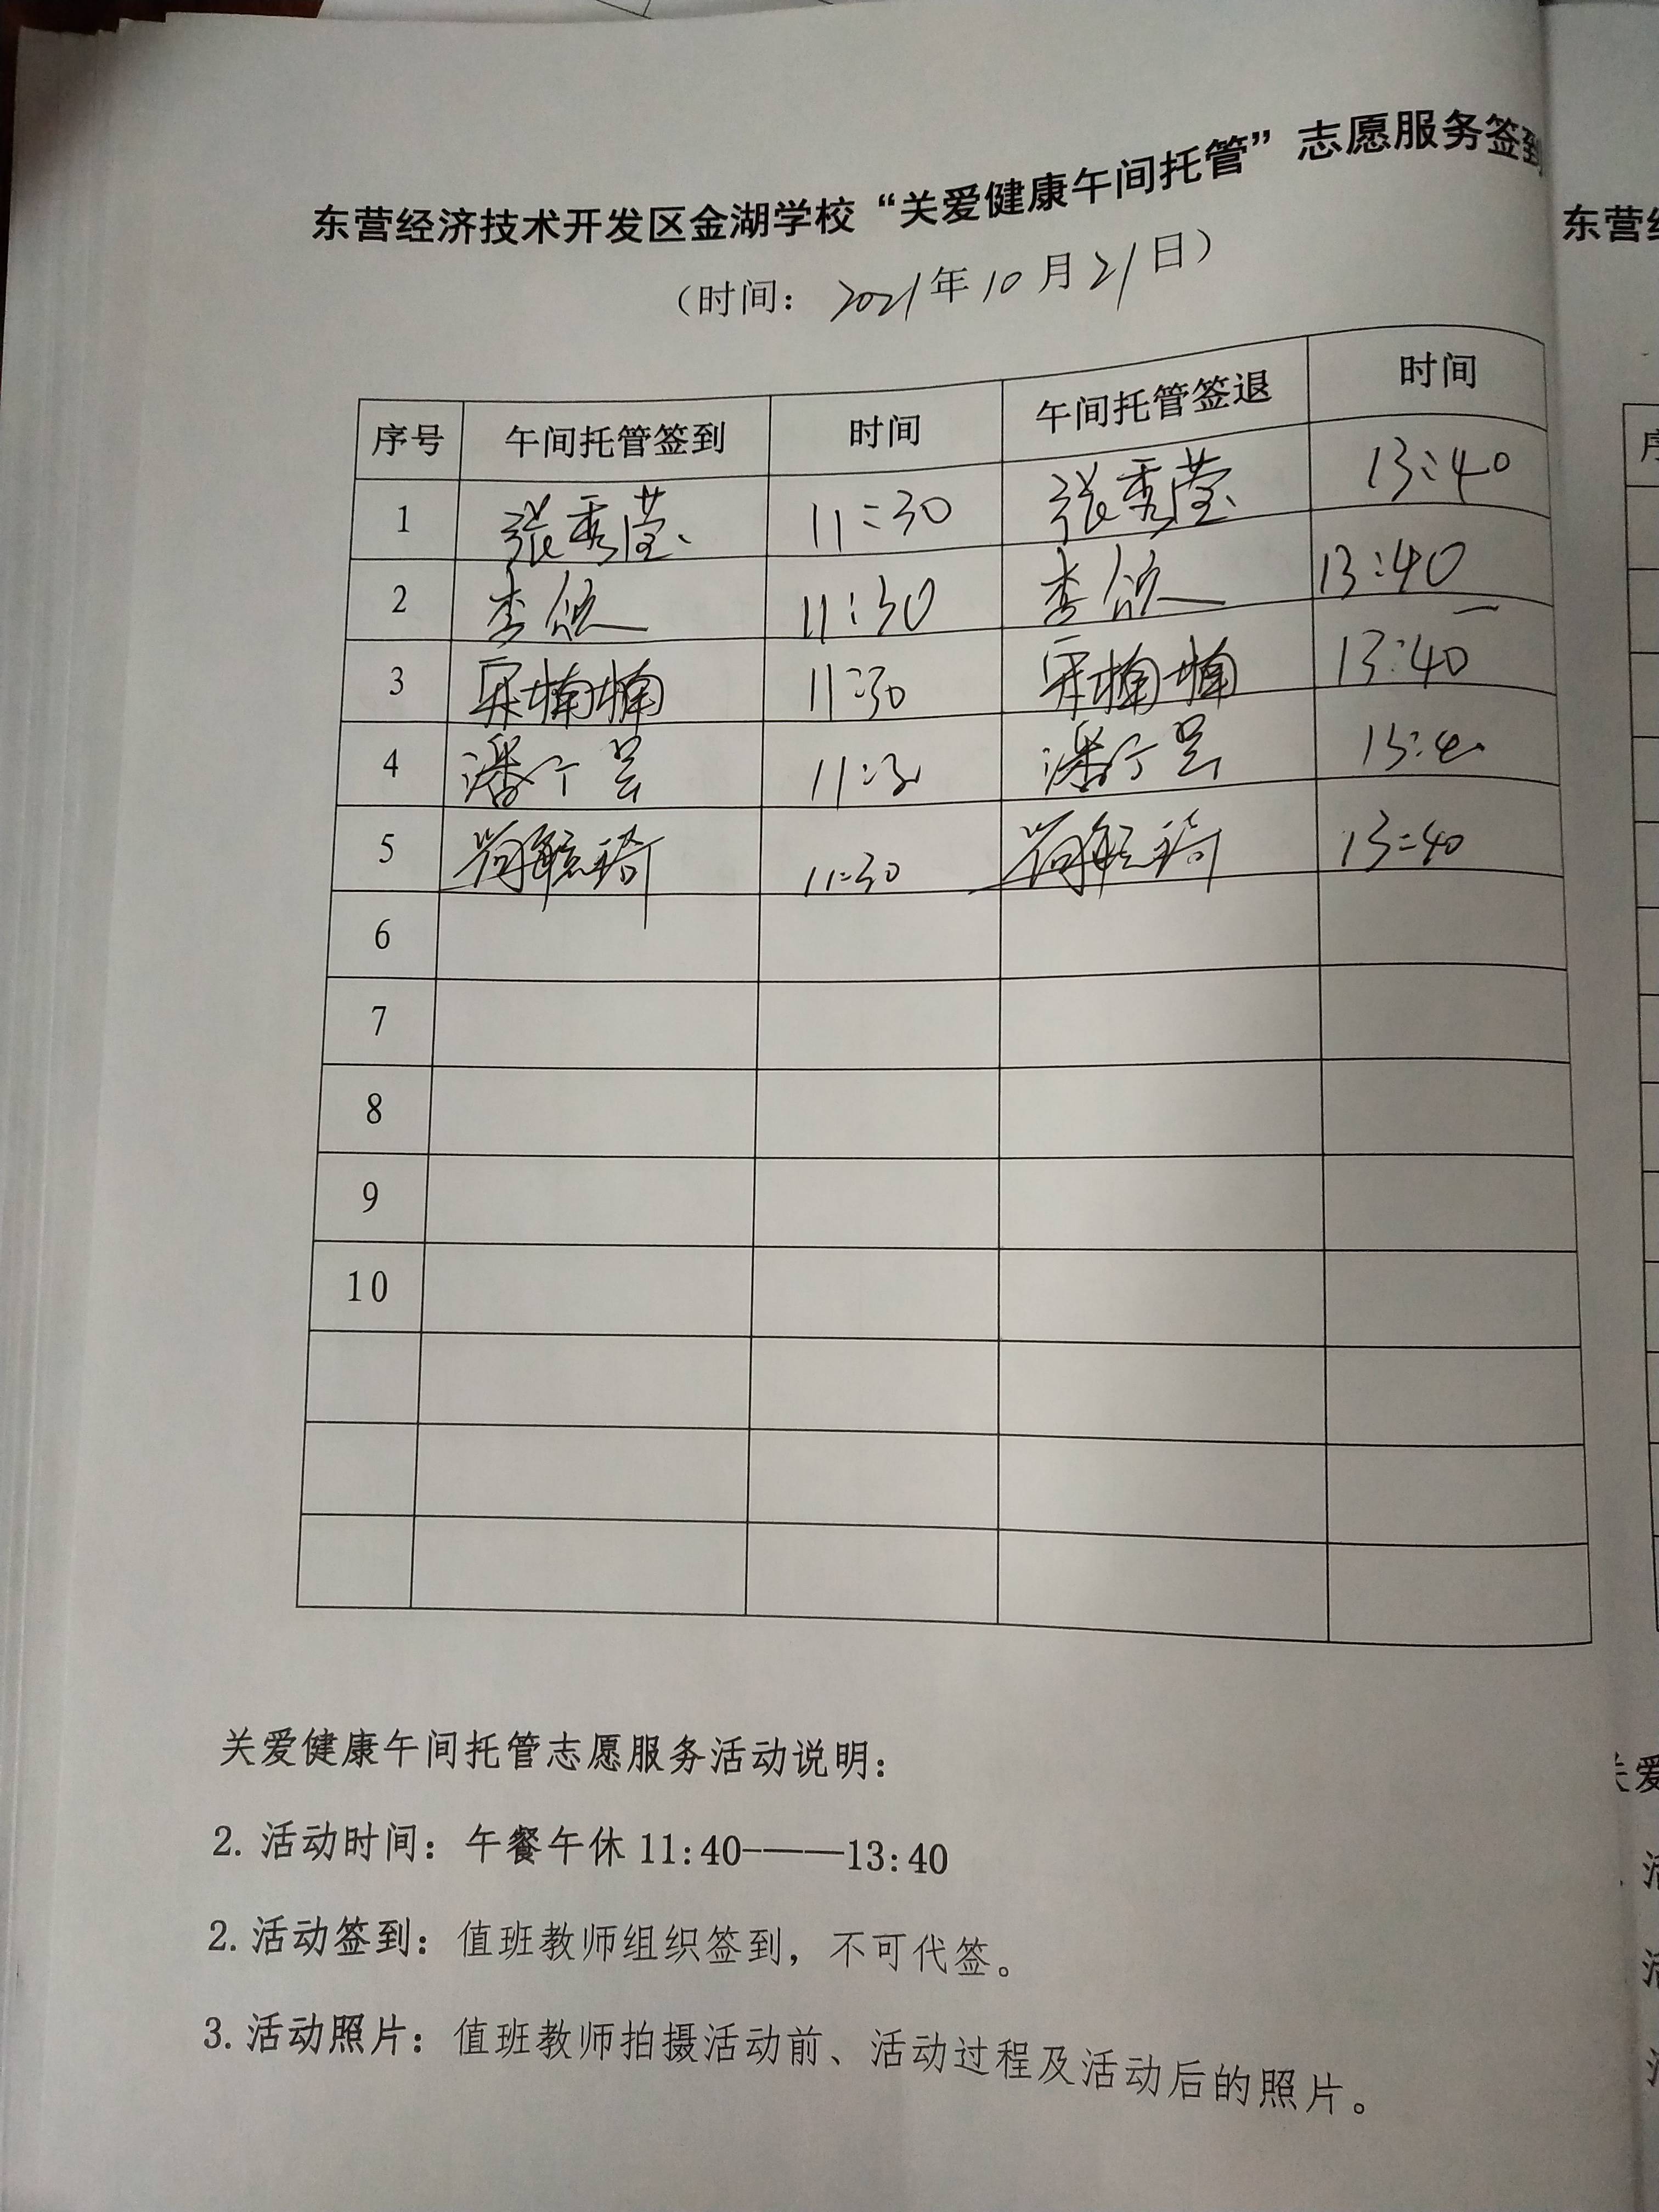 东营经济技术开发区金湖学校“关爱健康午间托管”志愿服务签到
（时间：2021年10月21日）
序号 午间托管签到 时间 午间托管签退 时间
1 张秀莹 11:30 张秀莹 13:40
2 李 11:30 李 13:40
3 楠楠 11:30 楠楠 13:40
4 潘 11:30 潘 13:40
5 琦 11:30 琦 13:40
6
7
8
9
10
关爱健康午间托管志愿服务活动说明：
2. 活动时间：午餐午休 11:40-——13:40
2. 活动签到：值班教师组织签到，不可代签。
3. 活动照片：值班教师拍摄活动前、活动过程及活动后的照片。
东营